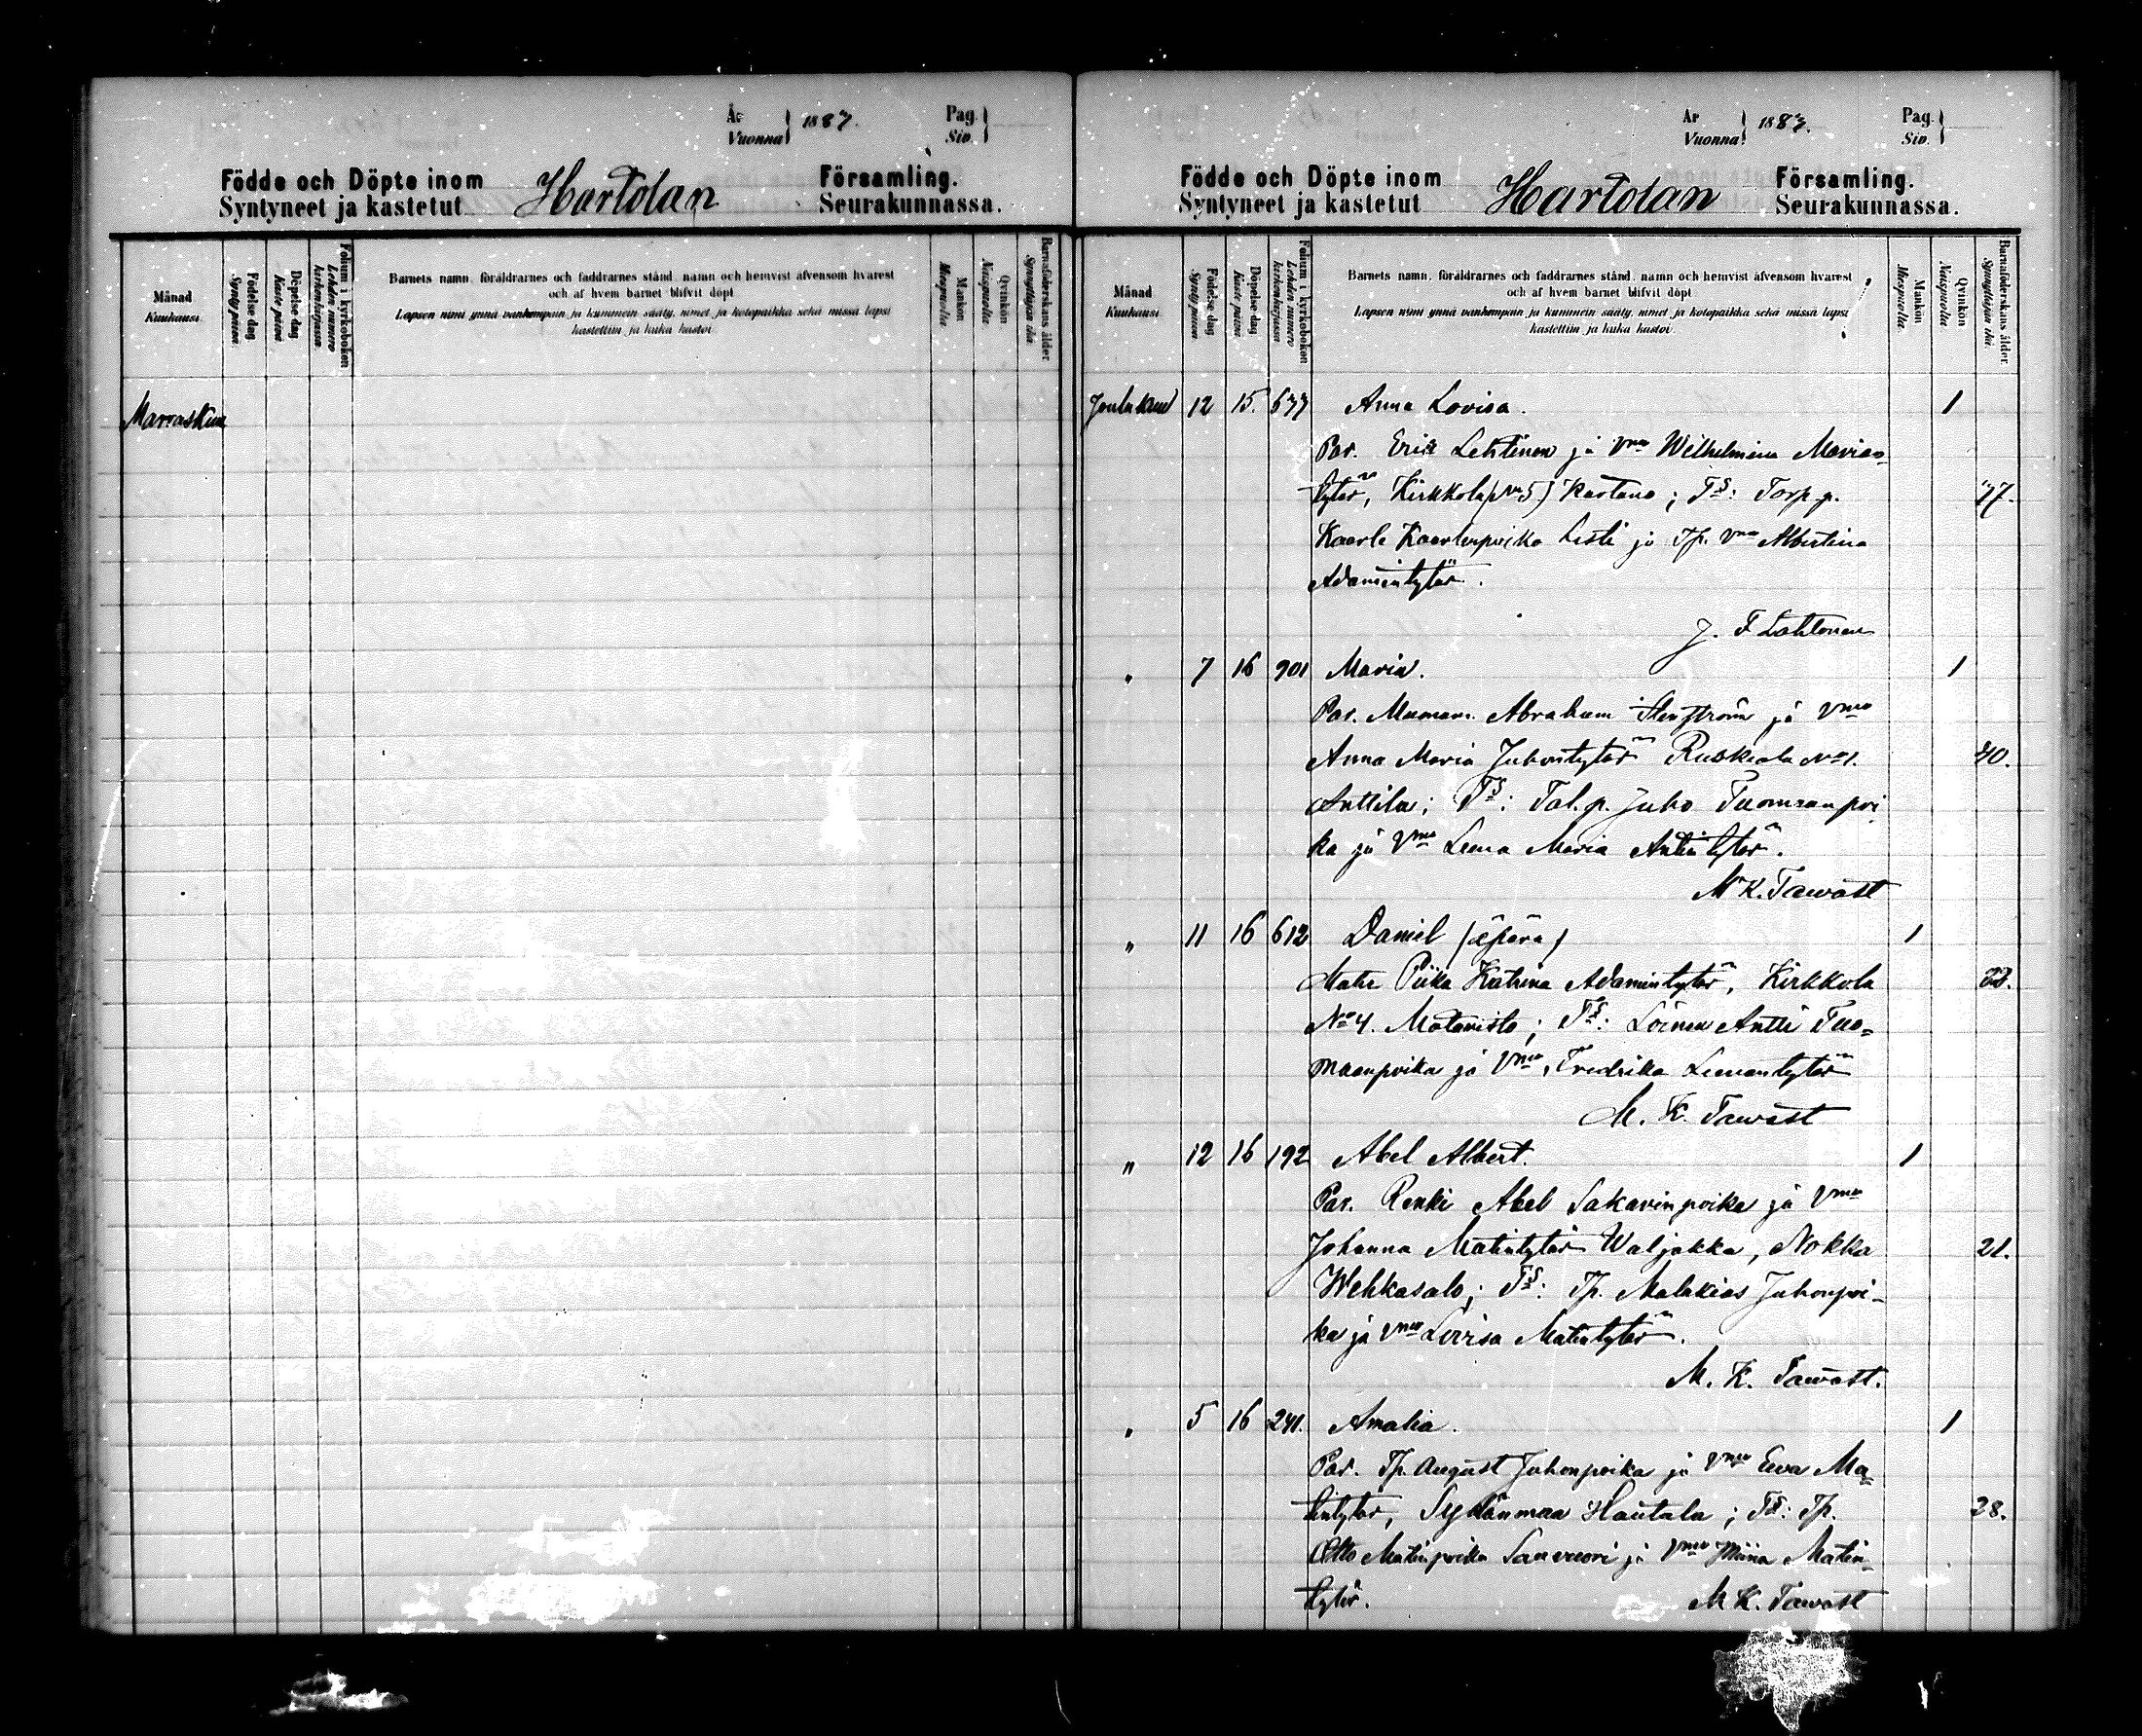 År Vuonna } 1887. Pag. Siv. }
Födde och Döpte inom Hartolan Församling.
Syntyneet ja kastetut Seurakunnassa.
Månad Kuukausi
Födelse dag Synty päivä
Döpelse dag Kaste päivä
Folium i kyrkoboken Lehden numero kirkonkirjassa
Barnets namn, föräldrarnes och faddrarnes stånd, namn och hemvist äfvensom hvarest
och af hvem barnet blifvit döpt
Lapsen nimi ynnä vanhempain ja kummein sääty, nimet ja kotopaikka sekä missä lapsi
kastettiin ja kuka kastoi
Mankön Miespuolia
Qvinkön Naispuolia
Barnaföderskans ålder Synnyttäjän ikä
Marraskuu
År Vuonna } 1887. Pag. Siv. }
Födde och Döpte inom Hartolan Församling.
Syntyneet ja kastetut Seurakunnassa.
Månad Kuukausi
Födelse dag Synty päivä
Döpelse dag Kaste päivä
Folium i kyrkoboken Lehden numero kirkonkirjassa
Barnets namn, föräldrarnes och faddrarnes stånd, namn och hemvist äfvensom hvarest
och af hvem barnet blifvit döpt
Lapsen nimi ynnä vanhempain ja kummein sääty, nimet ja kotopaikka sekä missä lapsi
kastettiin ja kuka kastoi.
Mankön Miespuolia
Qvinkön Naispuolia
Barnaföderskans ålder Synnyttäjän ikä.
Joulukuu 12 15. 677 Anna Lovisa. 1
Par. Erik Lehtinen ja Vmo Wilhelmina Marian=
tytär, Kirkkola (No 5) Kartano; TS: Torp p. 37.
Kaarle Kaarlenpoika Lesti ja Tp. Vmo Albertina
Adamintytär.
J. F Lahtonen
" 7 16 901 Maria. 1
Par. Muurar. Abraham Stenström ja Vmo
Anna Maria Juhontytär Ruskeala No 1. 40.
Anttila; TS: Tal. p. Juho Tuomaanpoi
ka ja Vmo Leena Maria Antintytär.
M K. Tawast
" 11 16 612 Daniel (äpärä) 1
Mater Piika Katrina Adamintytär, Kirkkola 22.
No 4. Mataristo; TS: Loinen Antti Tuo=
maanpoika ja Vmo Fredrika Leenantytär
M. K. Tawast
" 12 16 192 Abel Albert. 1
Par. Renki Abel Sakarinpoika ja Vmo
Johanna Matintytär Waljakka, Nokka 21.
Wehkasalo; TS: Tp. Malakias Juhonpoi-
ka ja Vmo Lovisa Matintytär.
M. K. Tawast.
" 5 16 241. Amalia. 1
Par. Tp. August Juhonpoika ja Vmo Eeva Ma=
tintytär, Sydänmaa Hautala; TS: Tp. 28.
Otto Matinpoika Sauvuori ja Vmo Miina Matin-
tytär. M K. Tawast